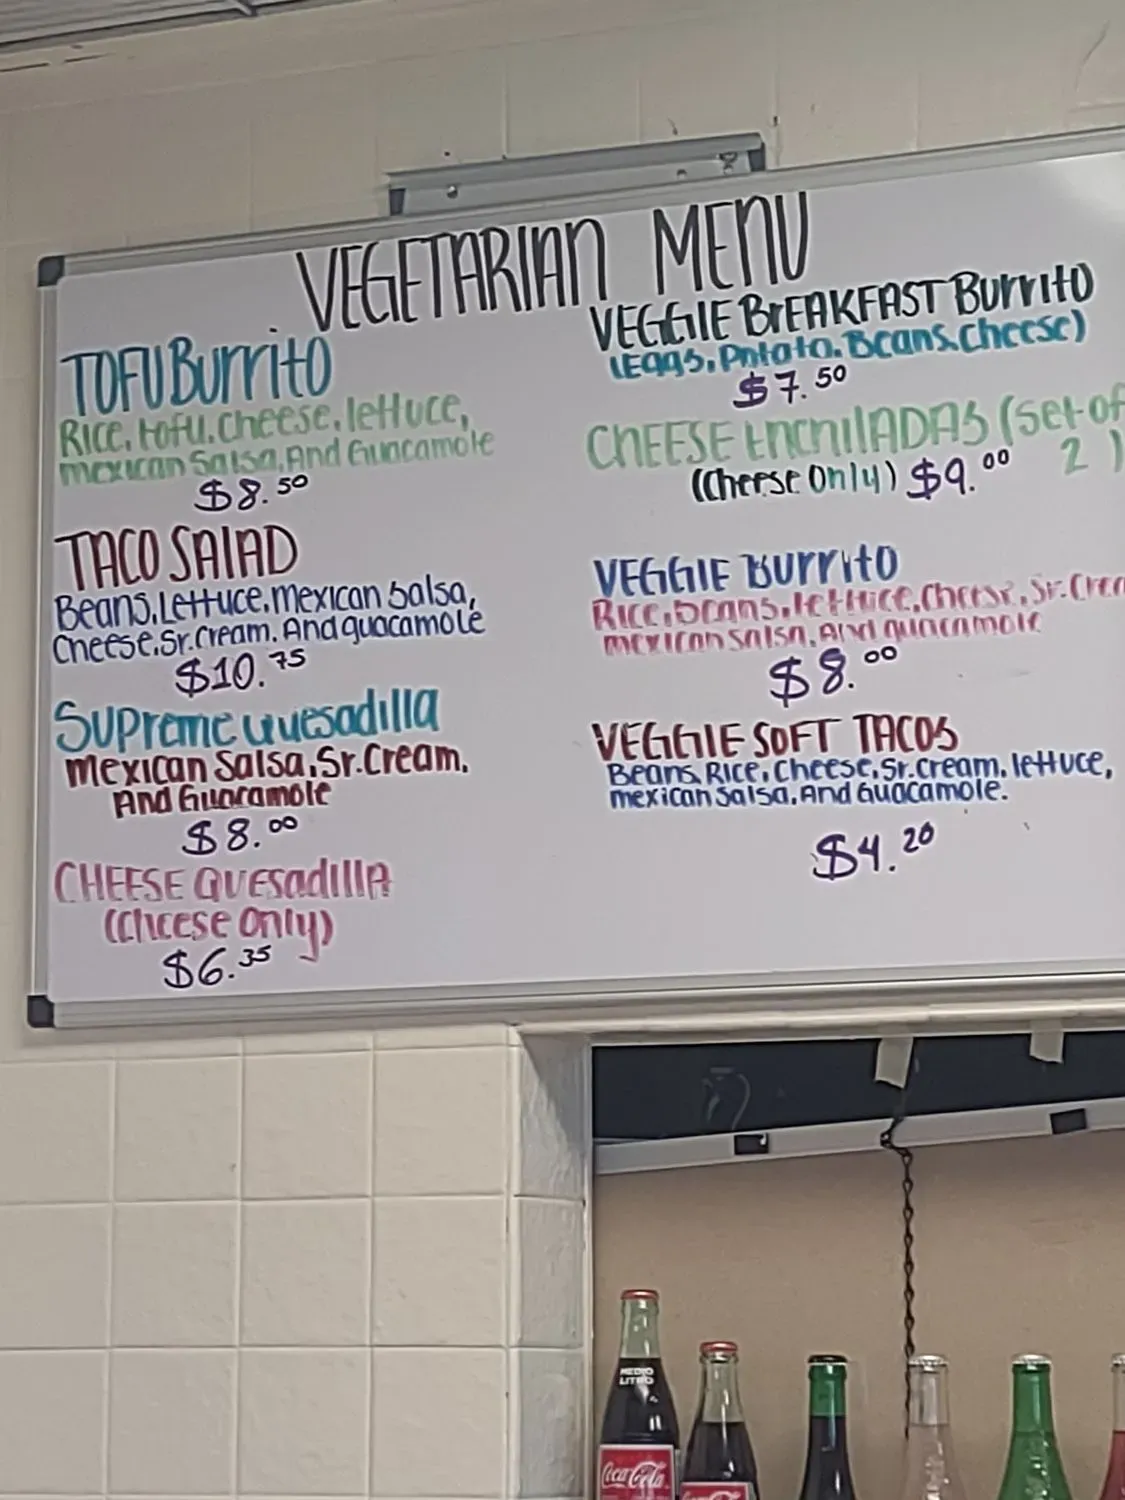 VEGETARIAN MENU
TOFU Burrito
Rice, tofu, cheese, lettuce,
mexican Salsa, And Guacamole
$8.50
TACO SALAD
Beans, Lettuce, mexican Salsa,
Cheese, Sr. Cream, And guacamole
$10.75
Supreme Quesadilla
Mexican Salsa, Sr. Cream,
And Guacamole
$8.00
CHEESE QUESadillA
(Cheese only)
$6.35
VEGGIE BrEAKFAST Burrito
(Eggs, Potato, Beans, Cheese)
$7.50
CHEESE EnchilADAS (Set of
2)
(Cheese Only) $9.00
VEGGIE Burrito
Rice, beans, lettuce, cheese, Sr. Crea
mexican salsa, And guacamole
$8.00
VEGGIE SOFT TACOS
Beans, Rice, Cheese, Sr. Cream, lettuce,
mexican Salsa, And Guacamole.
$4.20
MEDIO
LITRO
Coca-Cola
Coca-Cola